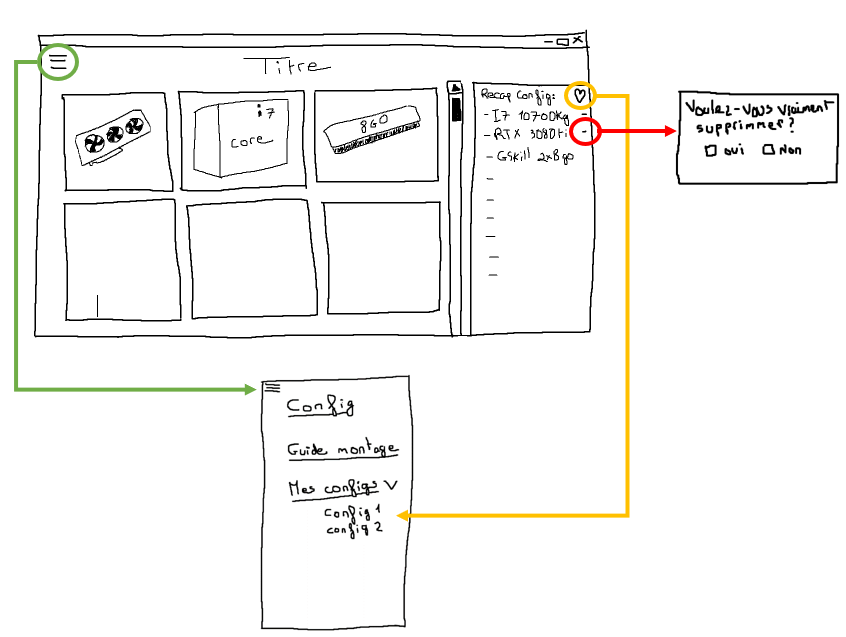 Titre
i7
core
8GO
Recap Config:
- I7 10700Kg -
- RTX 3080Ti -
- GSkill 2x8go
-
-
-
-
-
-
Voulez-vous vraiment
supprimmer?
oui Non
Config
Guide montage
Mes configs V
config 1
config 2